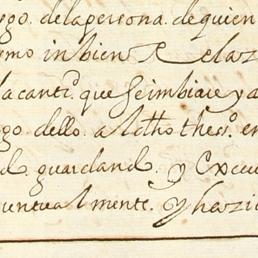 go. de la persona. de quien
mo inbien R elaz
la canti.d que se imbiare ya
go dello. al dho theso. en
d. guardand. y
untualmente. y haz